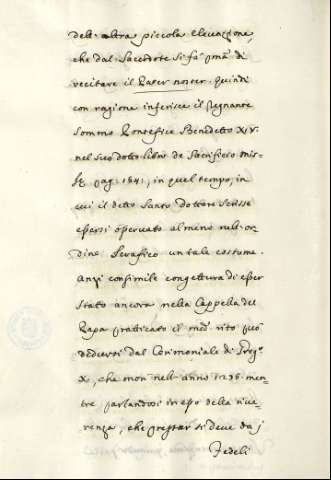 dell' altra piccola elevazione,
che dal Sacerdote si fà pma di
recitare il Pater noster. quindi
con ragione inferisce il Regnante
Sommo Pontefice Benedetto XIV.
nel suo dotto libro de Sacrificio Mis-
sę pag. 184., in quel tempo, in
cui il detto Santo Dottore scrisse
essersi osservato almeno nell' or-
dine Serafico un tale costume.
Anzi consimile congettura di esser
stato ancora nella Cappella del
Papa pratticato il med.o rito può
dedursi dal Cerimoniale di Greg.o
X., che morì nell' anno 1276 men-
tre parlandosi in esso della rive-
renza, che prestar si deve da i
Fedeli